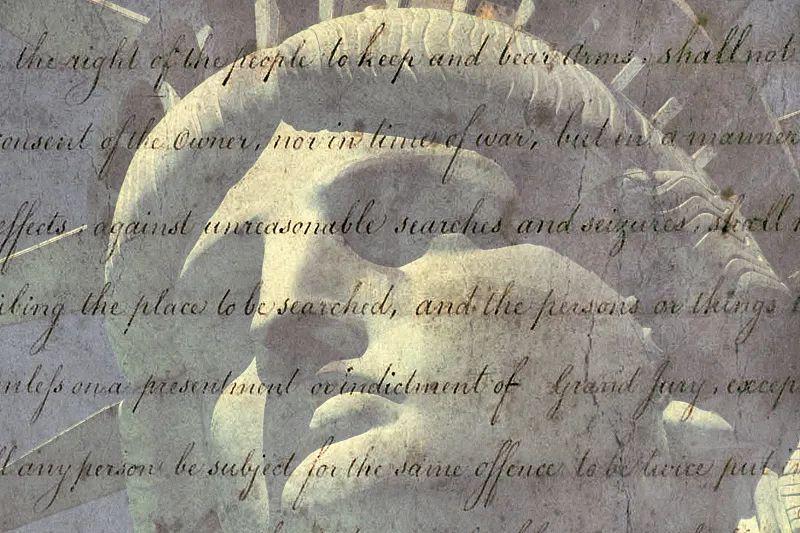 the right of the people to keep and bear Arms, shall not
consent of the Owner, nor in time of war, but in a manner
effects, against unreasonable searches and seizures, shall
ibing the place to be searched, and the persons or things
nless on a presentment or indictment of Grand Jury, excep
l any person be subject for the same offence to be twice put in